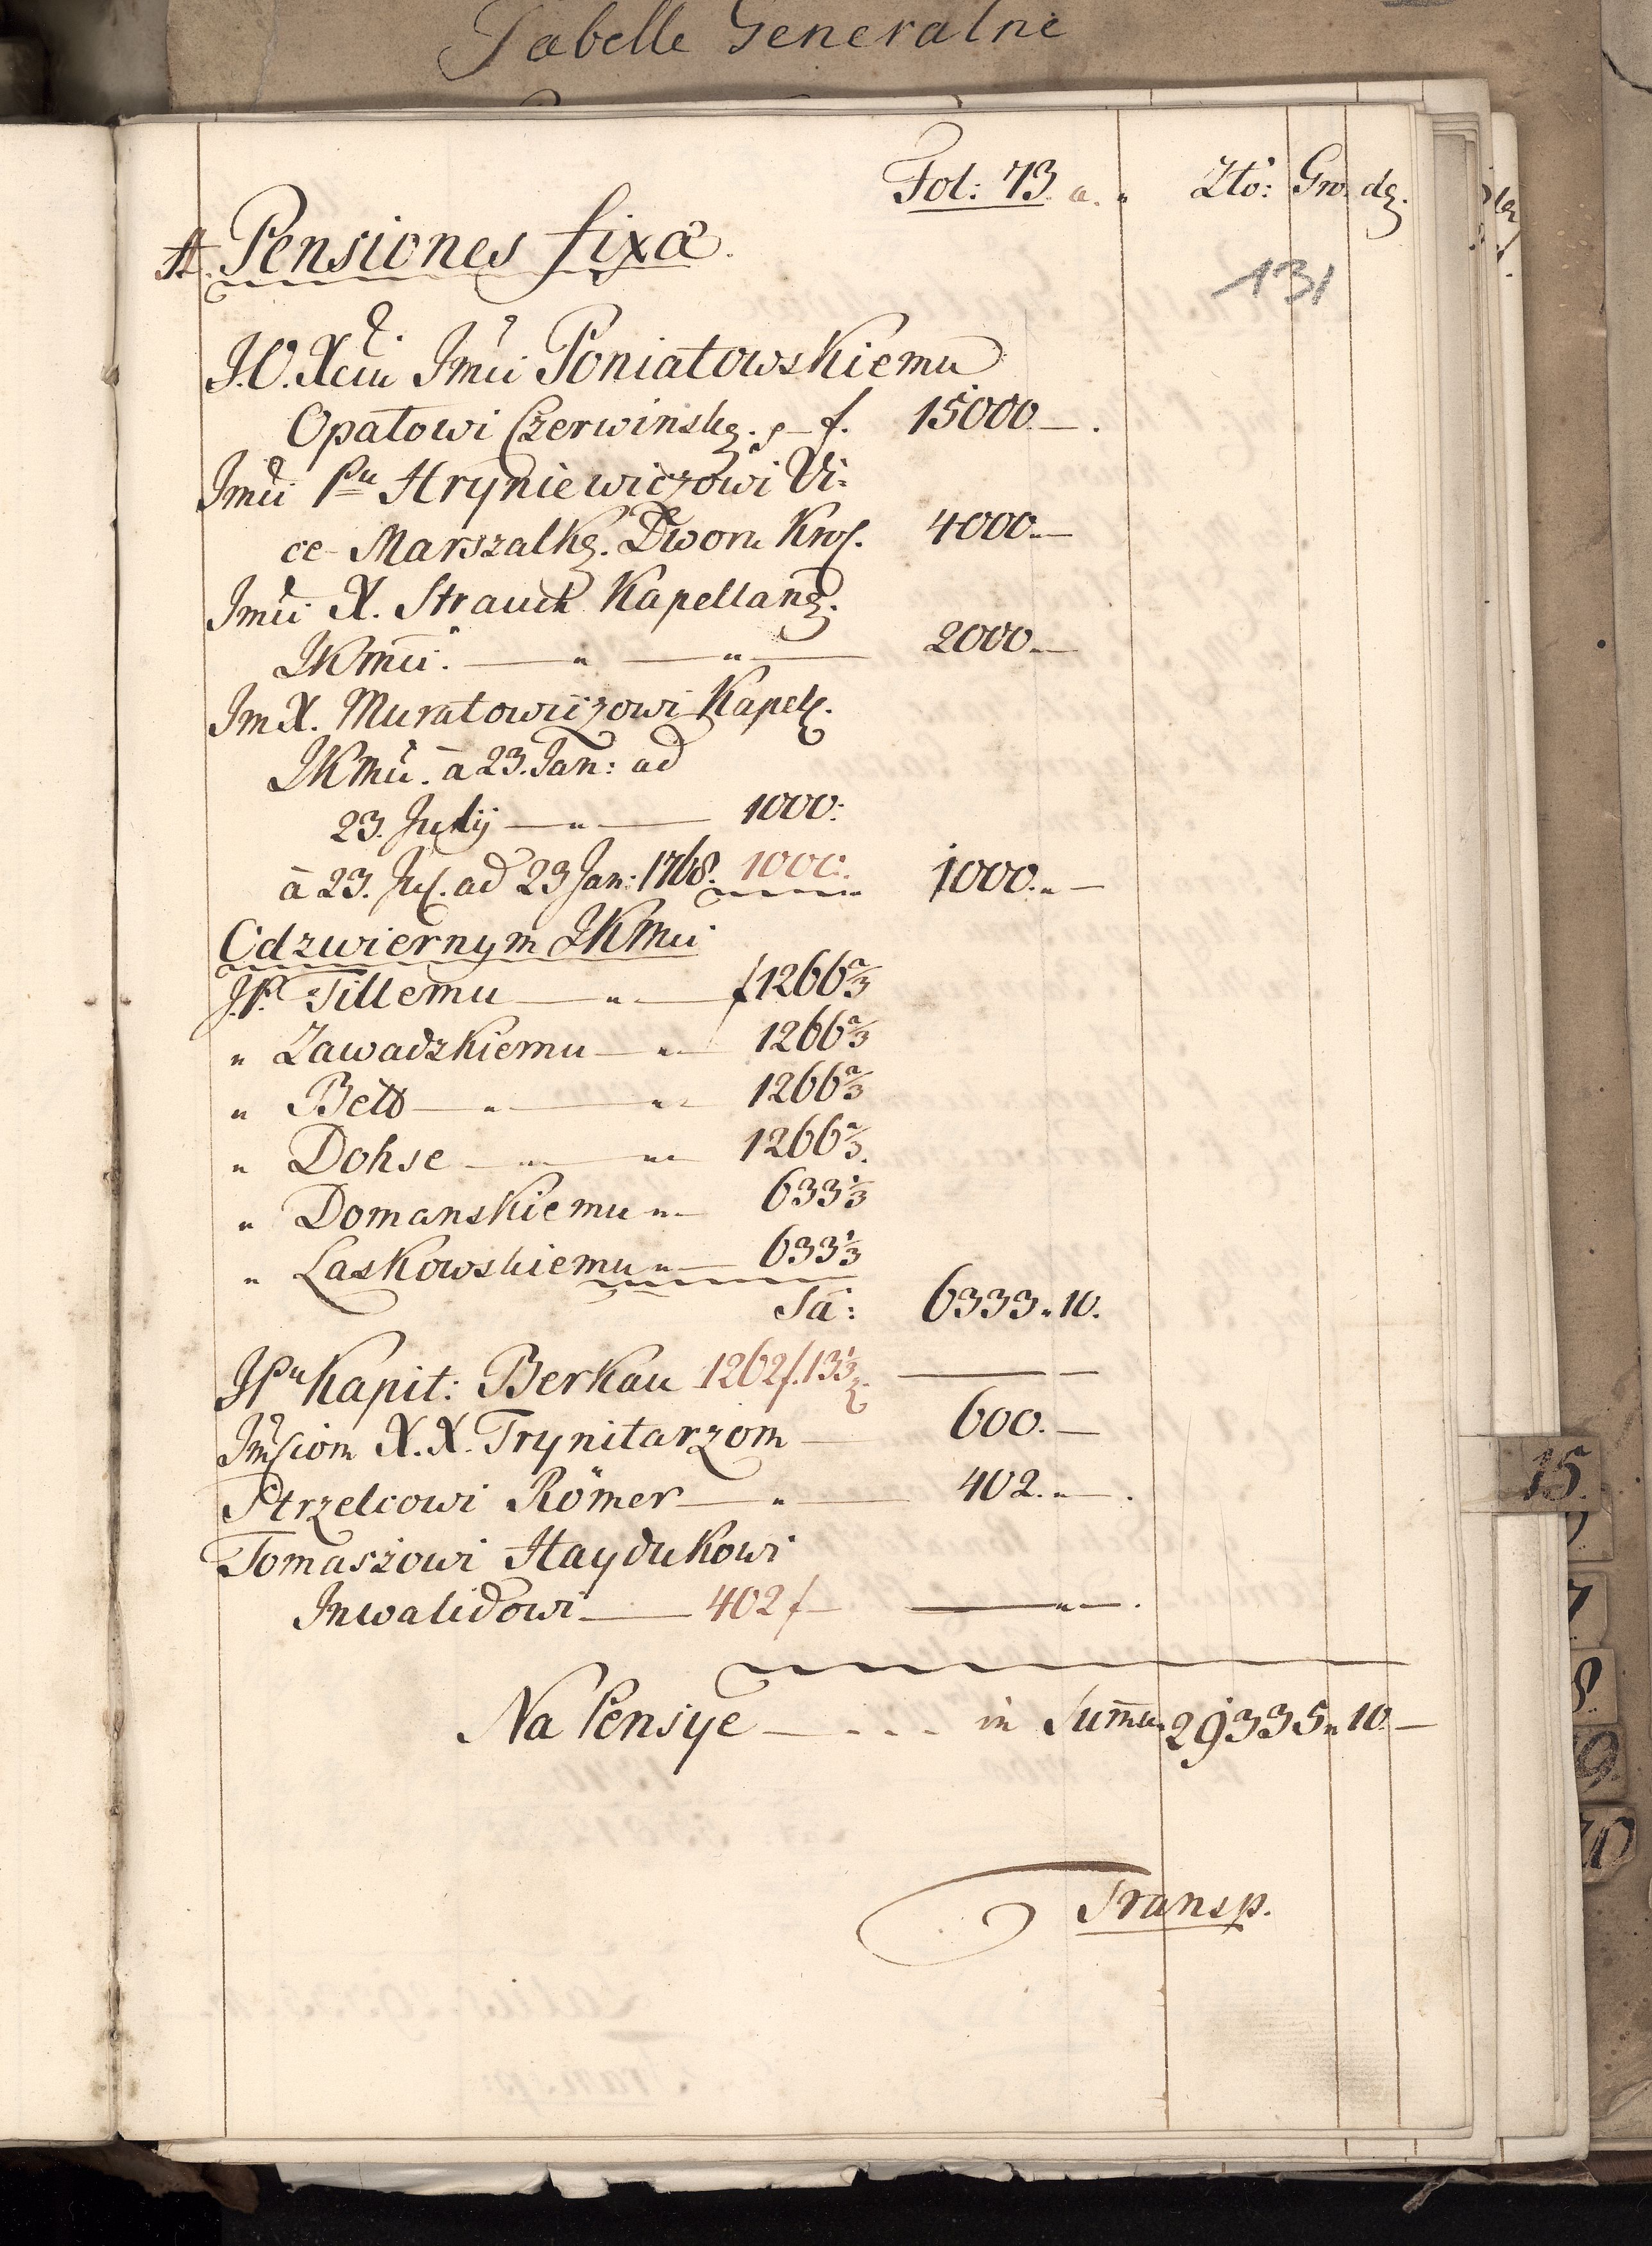 Tabelle Generalne
Fol: 73 a. " Zto: Gro. dg.
A. Pensiones fixæ.
131
J.O. Xciu Jmci Poniatowskiemu
Opatowi Czerwinskg. f. 15000.—.
Jmci Pu Hryniewiczowi Vi:
ce-Marszalkg. Dworu Krol. 4000.—
Jmci X. Strauch Kapellang.
JKmci. — " — " — 2000.—
Jm X. Muratowiczowi Kapell.
JKmci. à 23. Jan: ad
23. July — " — 1000:
à 23. Jul. ad 23 Jan: 1768. 1000:. 1000. " —
Odzwiernym JKmci
J.P. Tillemu — " — f 1266 2/3
" Zawadzkiemu — " — 1266 2/3
" Belo — " — " — 1266 2/3
" Dohse — " — " — 1266 2/3.
" Domanskiemu " — 633 1/3
" Laskowskiemu " — 633 1/3
Sa: 6333 " 10.
JPu Kapit: Berkau 1262 f. 13 1/3 g. — —
Jmsciom X.X. Trynitarzom — 600. —
Strzelcowi Römer — " — 402. " —.
Tomaszowi Haydukowi
Inwalidowi — 402 f — — " —.
Na Pensye — . . . . in Summa 29335 " 10 —
Transp.
15.
7
8.
9.
10